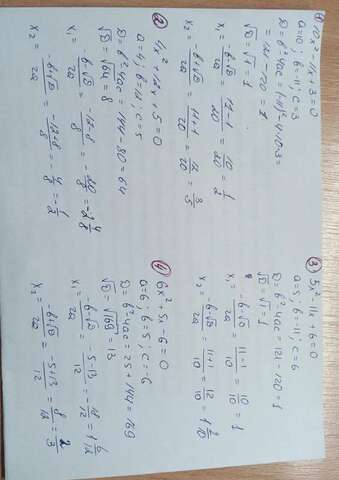 ① 10x² - 11x + 3 = 0
a=10, b=-11, c=3
D = b² - 4ac = (-11)² - 4·10·3 =
= 121 - 120 = 1
√D = √1 = 1
x₁ = -b-√D / 2a = 11-1 / 20 = 10/20 = 1/2
x₂ = -b+√D / 2a = 11+1 / 20 = 12/20 = 3/5
② 4x² + 12x + 5 = 0
a=4, b=12, c=5
D = b² - 4ac = 144 - 80 = 64
√D = √64 = 8
x₁ = -b-√D / 2a = -12-8 / 8 = -20/8 = -2 4/8
x₂ = -b+√D / 2a = -12+8 / 8 = -4/8 = -1/2
③ 5x² - 11x + 6 = 0
a=5, b=-11, c=6
D = b² - 4ac = 121 - 120 = 1
√D = √1 = 1
x₁ = -b-√D / 2a = 11-1 / 10 = 10/10 = 1
x₂ = -b+√D / 2a = 11+1 / 10 = 12/10 = 1 2/10
④ 6x² + 5x - 6 = 0
a=6, b=5, c=-6
D = b² - 4ac = 25 + 144 = 169
√D = √169 = 13
x₁ = -b-√D / 2a = -5-13 / 12 = -18/12 = -1 6/12
x₂ = -b+√D / 2a = -5+13 / 12 = 8/12 = 2/3